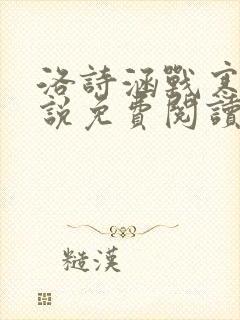 洛詩涵戰寒
說免費閱讀
糙漢